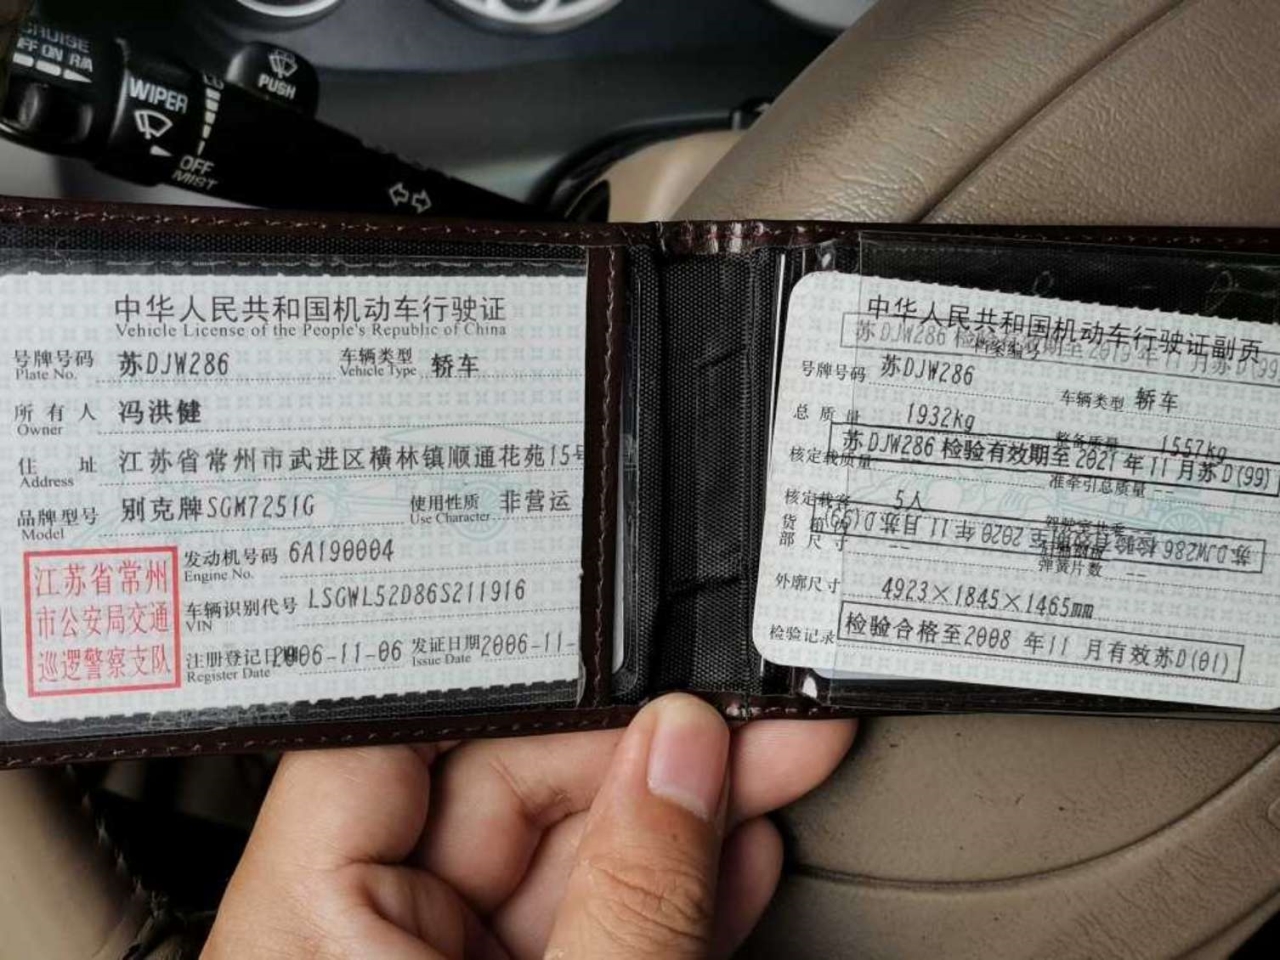 CRUISE
OFF ON R/A
WIPER
PUSH
OFF
MIST
中华人民共和国机动车行驶证
Vehicle License of the People's Republic of China
号牌号码 苏DJW286 车辆类型 轿车
Plate No. Vehicle Type
所有人 冯洪健
Owner
住址 江苏省常州市武进区横林镇顺通花苑15号
Address
品牌型号 别克牌SGM7251G 使用性质 非营运
Model Use Character
江苏省常州
市公安局交通
巡逻警察支队
发动机号码 6A190004
Engine No.
车辆识别代号 LSGWL52D86S211916
VIN
注册登记日期 2006-11-06 发证日期 2006-11-
Register Date Issue Date
中华人民共和国机动车行驶证副页
苏DJW286 检验有效期至2019年11月苏D(99
号牌号码 苏DJW286 车辆类型 轿车
总质量 1932kg 整备质量 1557kg
苏DJW286 检验有效期至2021年11月苏D(99)
核定载质量 准牵引总质量 --
核定载客 5人
苏DJW286 检验有效期至2020年11月苏D(99)
货箱
部尺寸 -- 弹簧片数 --
外廓尺寸 4923×1845×1465mm
检验记录 检验合格至2008年11月有效苏D(01)